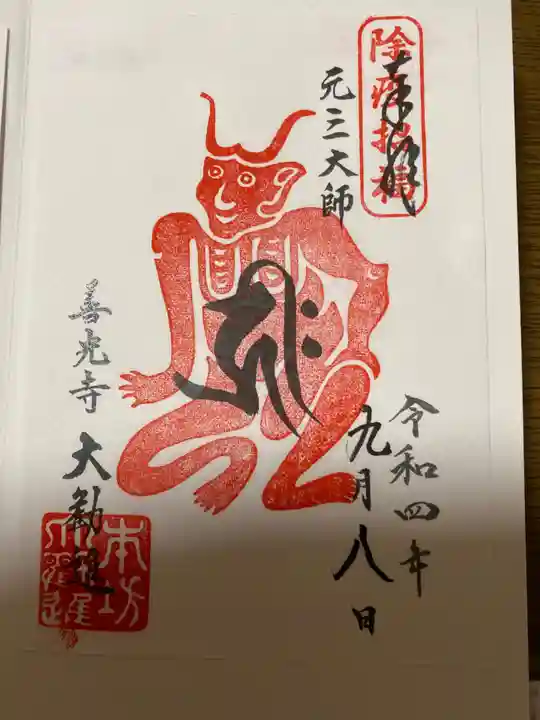 除疫招福
奉拝
元三大師
令和四年
九月八日
善光寺 大勧進
本坊
大勧進